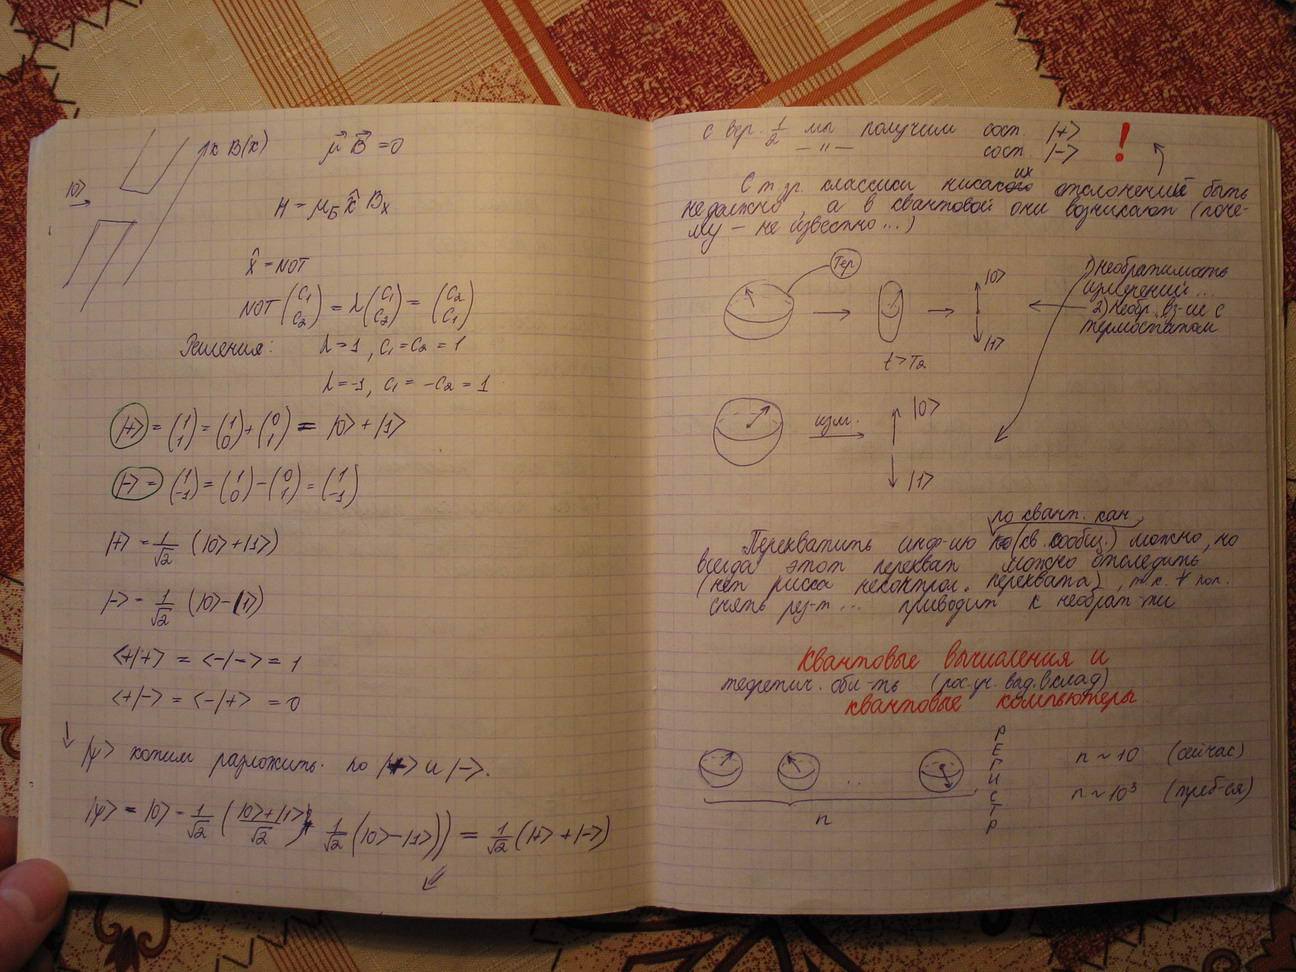 |0>
x B(x)
μ⃗ B⃗ = 0
H = μ_Б x̂ B_x
x̂ = NOT
NOT (c₁ c₂) = λ (c₁ c₂) = (c₂ c₁)
Решения: λ=1, c₁ = c₂ = 1
λ=-1, c₁ = -c₂ = 1
|+> = (1 1) = (1 0) + (0 1) = |0> + |1>
|-> = (1 -1) = (1 0) - (0 1) = (1 -1)
|+> = 1/√2 (|0> + |1>)
|-> = 1/√2 (|0> - |1>)
<+|+> = <-|-> = 1
<+|-> = <-|+> = 0
|ψ> хотим разложить по |+> и |->.
|ψ> = |0> = 1/√2 (|0>+|1>/√2 + 1/√2 (|0> - |1>)) = 1/√2 (|+> + |->)
с вер. 1/2 мы получим сост. |+> !
— " — сост |->
С т.зр. классики никаких отклонений быть
не должно, а в квантовой они возникают (поче-
му – не известно...)
Тер
|0>
|1>
t > T₂
1) необратимость
измерений...
2) необр. вз-ие с
термостатом
изм.
|0>
|1>
по квант. кан.
Перехватить инф-ию (кв. сообщ.) можно, но
всегда этот перехват можно отследить
(нет риска неконтрол. перехвата), т.к. ∀ поп.
снять рез-т ... приводит к необрат-ти
Квантовые вычисления и
теоретич. обл-ть (рос. уч. выд. вклад)
квантовые компьютеры.
...
n
Р
Е
Г
И
С
Т
Р
n ~ 10 (сейчас)
n ~ 10³ (треб-ся)